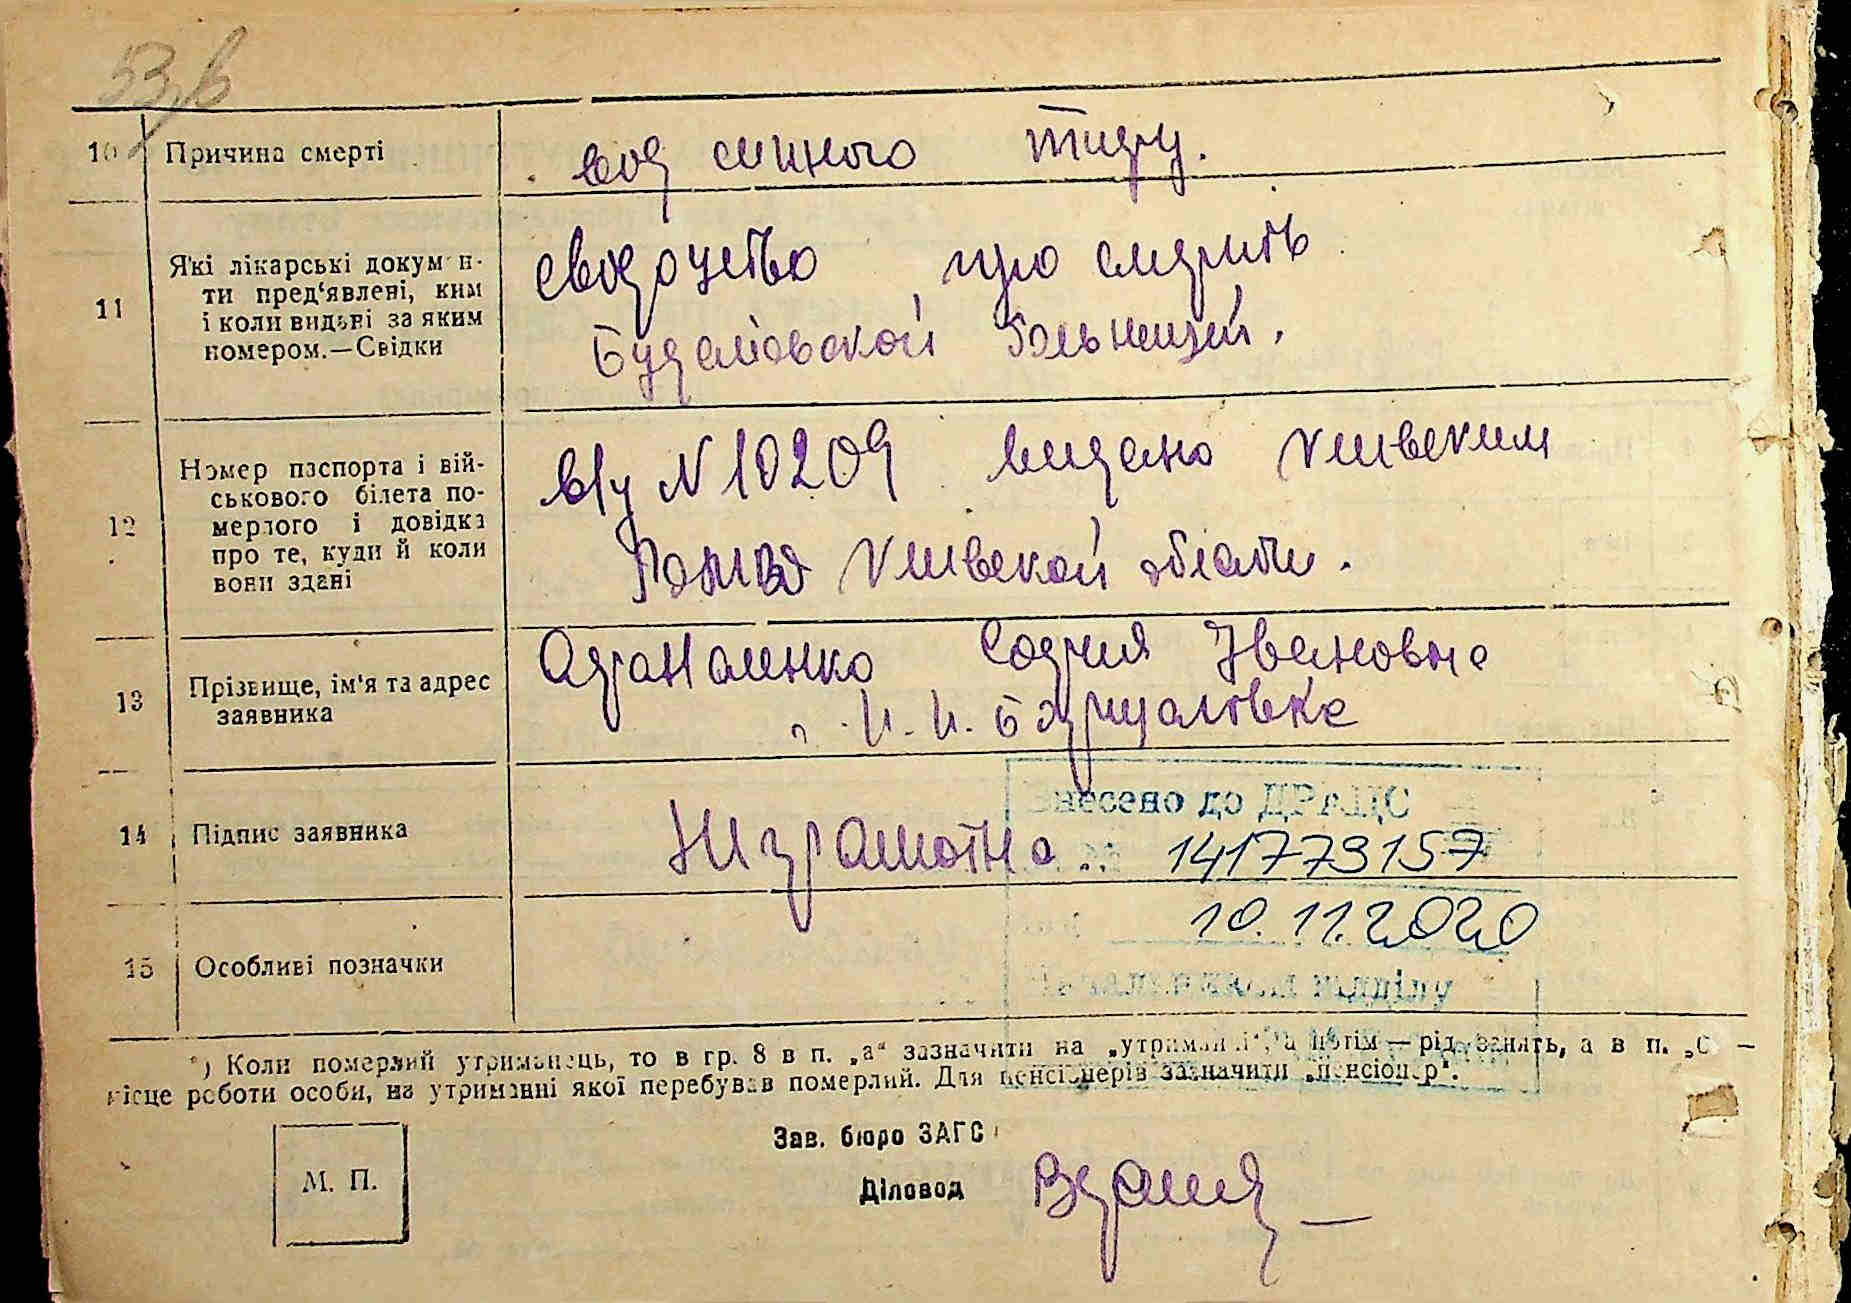 53, в
10 Причина смерті
від сипного тифу.
11 Які лікарські докумен-
ти пред‘явлені, ким
і коли видані за яким
номером.—Свідки
свідоцтво про смерть
больницей.
12 Номер паспорта і вій-
ськового білета по-
мерлого і довідка
про те, куди й коли
вони здані
в/у N 10209 видано
Киевской області.
13 Прізвище, ім‘я та адрес
заявника
София Ивановна
14 Підпис заявника
Неграмотна
Внесено до ДРАЦС
141773157
10.11.2020
15 Особливі позначки
Начальник відділу
*) Коли померлий утриманець, то в гр. 8 в п. „а“ зазначити на „утриманні“, а потім — рід занять, а в п. „б“ —
місце роботи особи, на утриманні якої перебував померлий. Для пенсіонерів зазначити „пенсіонер“.
Зав. бюро ЗАГС
М. П.
Діловод